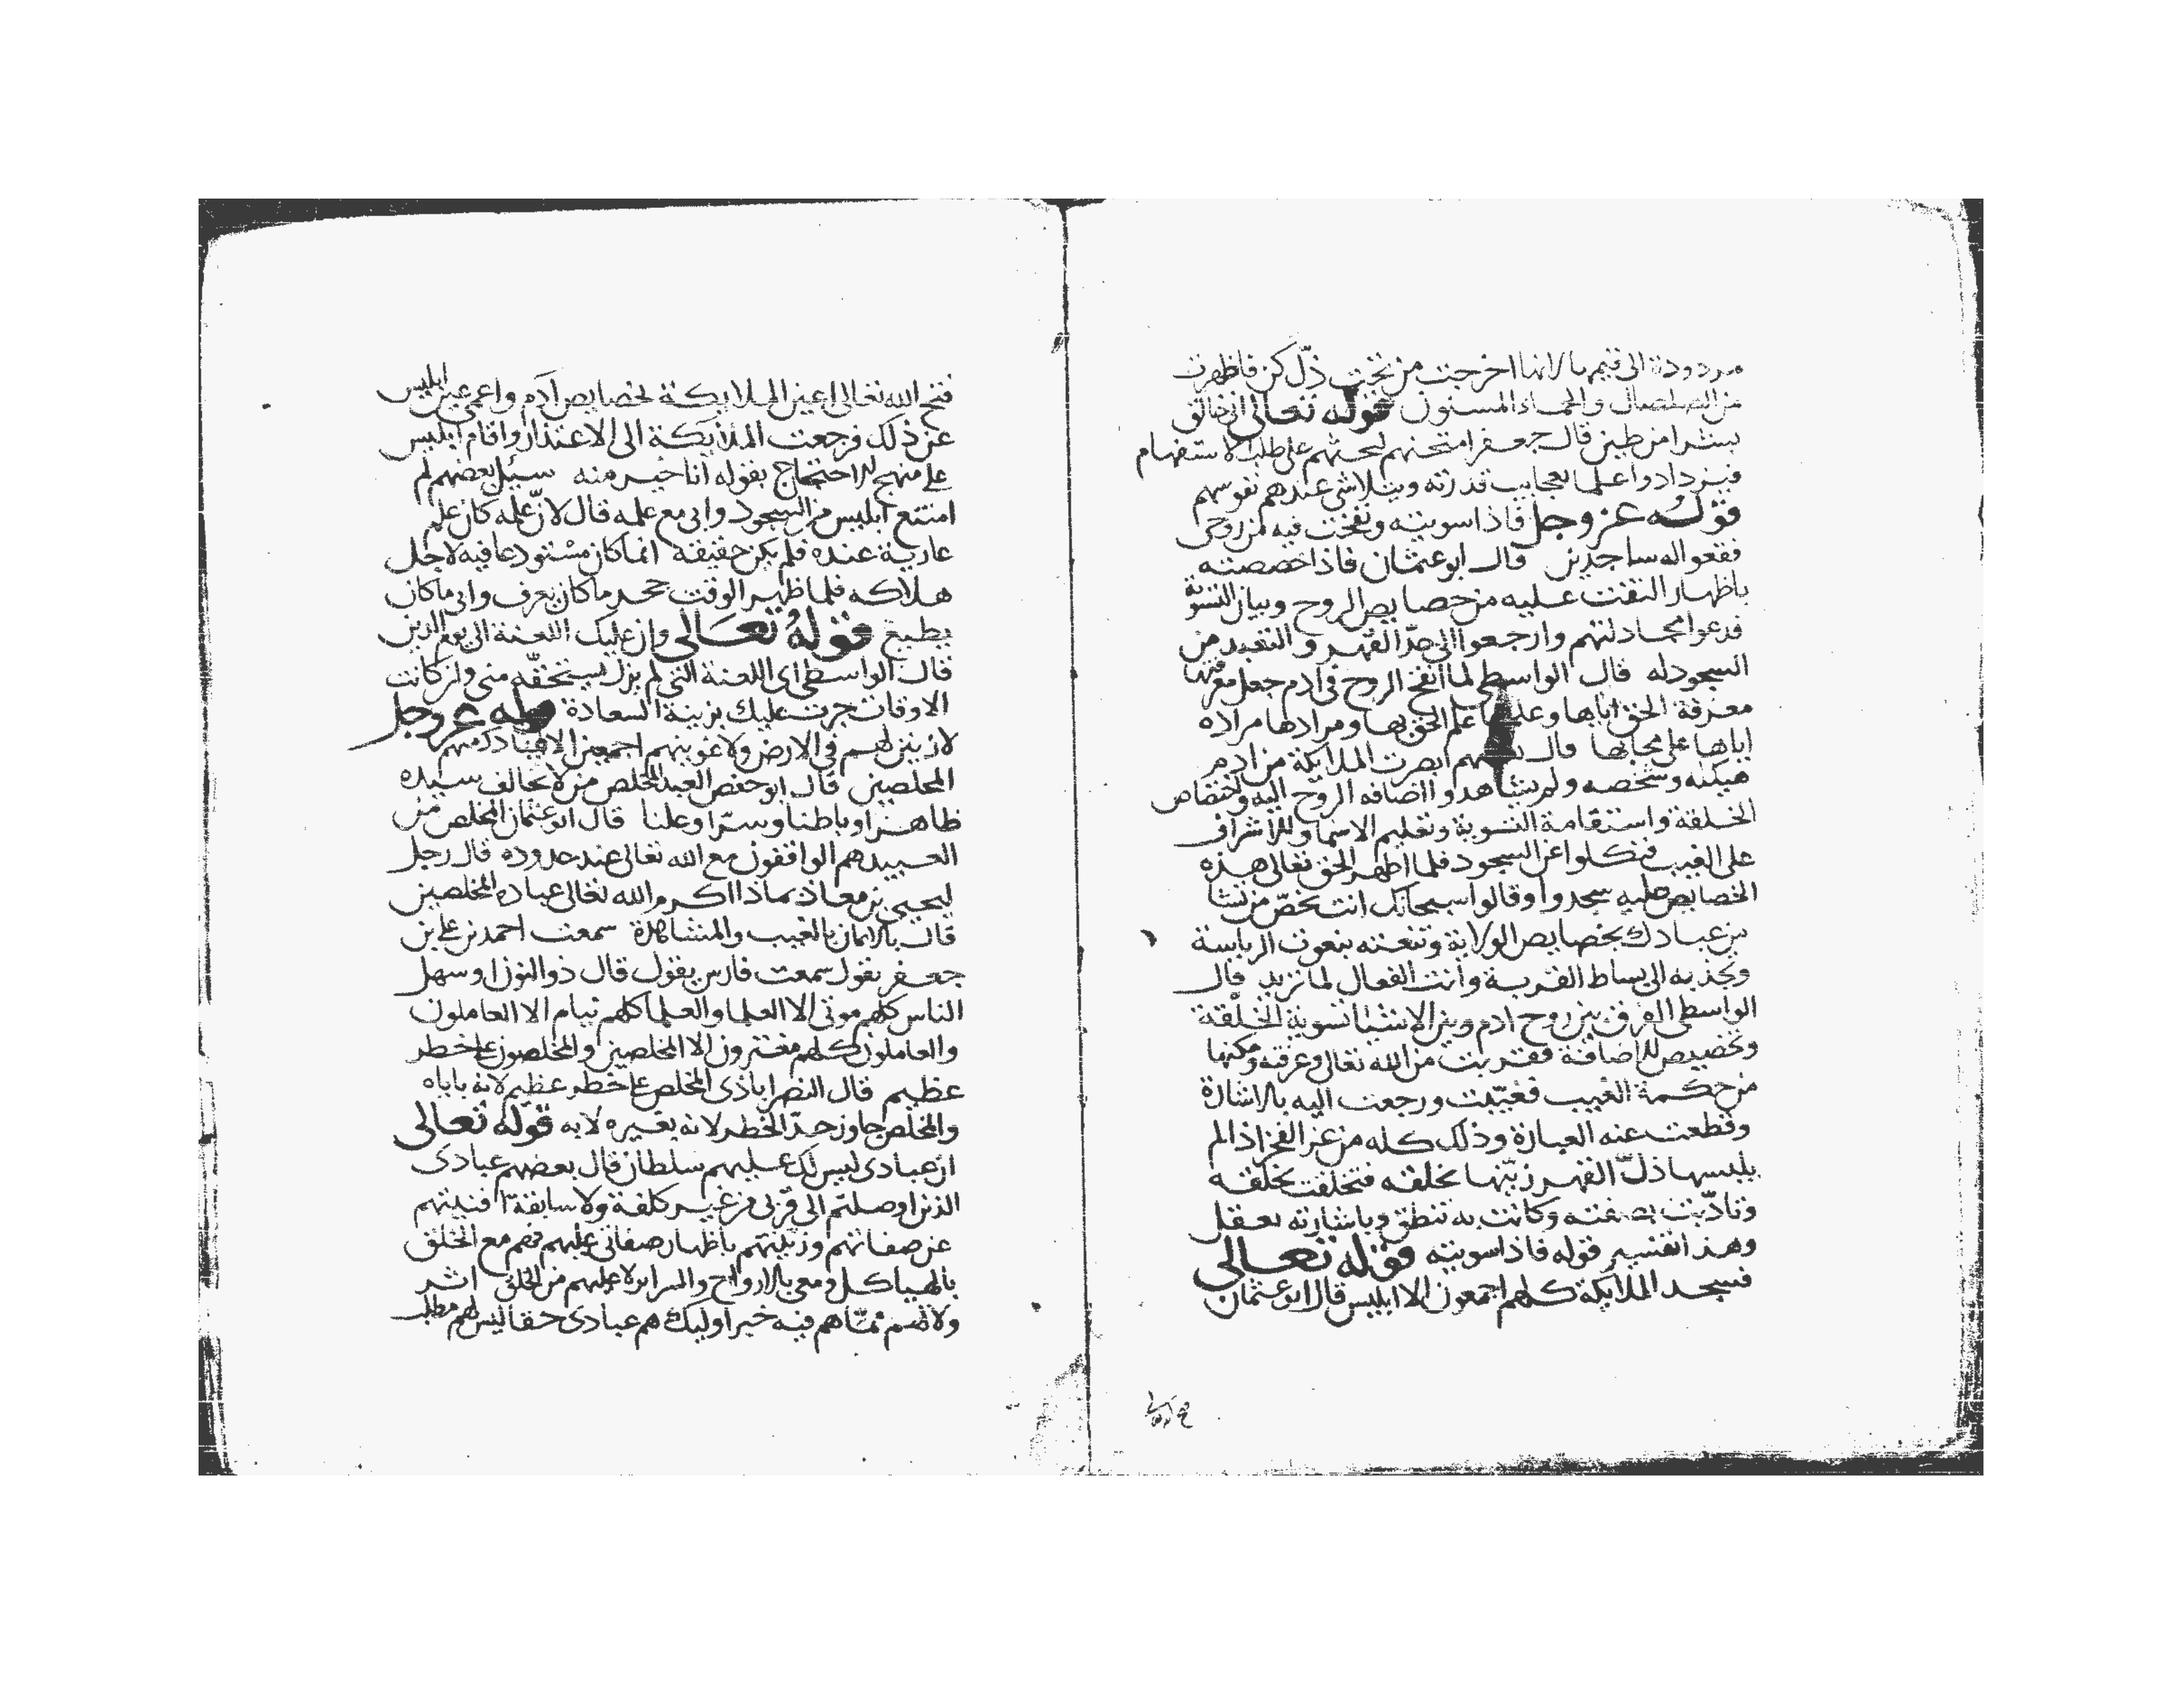 مردودة الى قيم بالانها اخرجت من تحت ذل كن فاظهرت
من الصلصال والحماء المسنون قوله تعالى اني خالق
بشرا من طين قال جعفر امتحنهم ليحثهم على طلب الاستفهام
فيزدادوا علما بعجايب قدرته ويتلاشى عندهم نفوسهم
قوله عز وجل فاذا سويته ونفخت فيه من روحي
فقعوا له ساجدين قال ابو عثمان فاذا خصصته
باظهار النفث عليه من خصايص الروح وبيان التسوية
فدعوا مجادلتهم وارجعوا الى حد القهر والتعبد من
السجود له قال الواسطي لما انفخ الروح في ادم جعل معرفتها
معرفة الحق اياها وعلمها علم الحق بها ومرادها مراده
اياها على محابها قال بعضهم ابصرت الملايكة من ادم
هيكله وشخصه ولم يشاهدوا اضافه الروح اليه واختصاص
الخلقة واستقامة التسوية وتعليم الاسما وللاشراف
على الغيب فنكلوا عن السجود فلما اظهر الحق تعالى هذه
الخصايص عليه سجدوا وقالوا سبحانك انت تخص من تشا
من عبادك بخصايص الولاية وتنعته بنعوت الرياسة
وتجذبه الى بساط القربة وانت الفعال لما تريد قال
الواسطي الفرق بين روح ادم وبين الاشيا تسوية الخلقة
وتخصيص للاضافة فقربت من الله تعالى وعرفته ومكنها
من حكمة الغيب فغيبت ورجعت اليه بالاشارة
وقطعت عنه العبارة وذلك كله من عز الفخر اذ لم
يلبسها ذل القهر زينها بخلقه فتخلقت بخلقه
وتادبت بصفته وكانت به تنطق وباشارته تعقل
وهذا تفسير قوله فاذا سويته قوله تعالى
فسجد الملايكة كلهم اجمعون الا ابليس قال ابو عثمان
فتح الله تعالى اعين الملايكة لخصايص آدم واعمى عين ابليس
عن ذلك فرجعت الملايكة الى الاعتذار واقام ابليس
على منهج للاحتجاج بقوله انا خير منه سيل بعضهم لم
امتنع ابليس من السجود وابى مع علمه قال لان علمه كان علم
عارية عنده فلم يكن حقيقة انما كان مستودعا فيه لاجل
هلاكه فلما ظهر الوقت جحد ما كان يعرف وابى ما كان
يطيع قوله تعالى وان عليك اللعنة الى يوم الدين
قال الواسطي اى اللعنة التي لم يزل يستحقه مني وان كانت
الاوقات جرت عليك بزينة السعادة قوله عز وجل
لازينن لهم في الارض ولاغوينهم اجمعين الا عبادك منهم
المخلصين قال ابو حفص العبد المخلص من لا يخالف سيده
ظاهرا وباطنا وسرا وعلنا قال ابو عثمان المخلص من
العبيد هم الواقفون مع الله تعالى عند حدوده قال رجل
ليحيى بن معاذ بماذا اكرم الله تعالى عباده المخلصين
قال بالايمان بالغيب والمشاهدة سمعت احمد بن علي بن
جعفر يقول سمعت فارس يقول قال ذو النون او سهل
الناس كلهم موتى الا العلما والعلما كلهم نيام الا العاملون
والعاملون كلهم مغترون الا المخلصين والمخلصون على خطر
عظيم قال النصراباذى المخلص على خطر عظيم لانه باياه
والمخلص جاوز حد الخطر لانه بغيره لا به قوله تعالى
ان عبادى ليس لك عليهم سلطان قال بعضهم عبادى
الذين اوصلتم الى قربى من غير كلفة ولا سابقة افنيتهم
عن صفاتهم وزينتهم باظهار صفاتي عليهم فهم مع الخلق
بالهياكل ومعي بالارواح والسراير لا عليهم من الخلق اثر
ولا لهم مما هم فيه خبر اوليك هم عبادى حقا ليس لهم مطلب